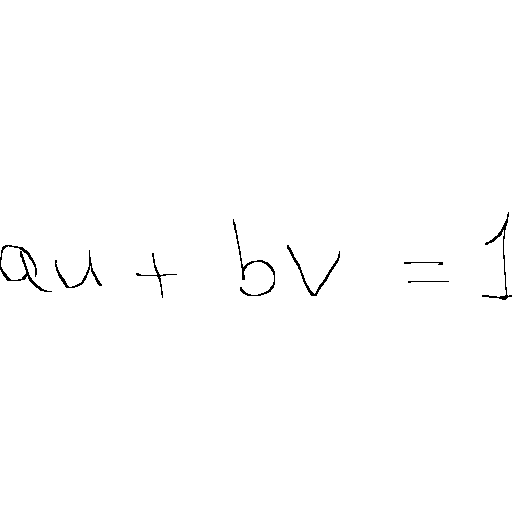 au + bv = 1